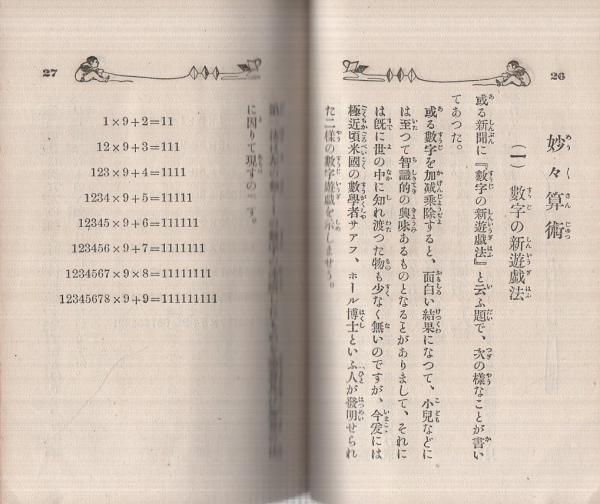 26
妙々算術
(一) 數字の新遊戯法
或る新聞に『數字の新遊戯法』と云ふ題で、次の樣なことが書い
てあつた。
或る數字を加减乘除すると、面白い結果になつて、小兒などに
は至つて智識的の興味あるものとなることがありまして、それに
は既に世の中に知れ渡つた物も少なく無いのですが、今爰には
極近頃米國の數學者サアフ、ホール博士といふ人が發明せられ
た二樣の數字遊戯を示しませう。
27
に因りて現すのです。
1×9+2=11
12×9+3=111
123×9+4=1111
1234×9+5=11111
12345×9+6=111111
123456×9+7=1111111
1234567×9×8=11111111
12345678×9+9=111111111